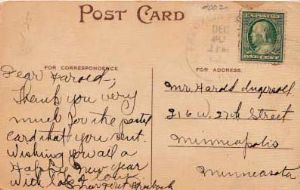 POST CARD
FOR CORRESPONDENCE
FOR ADDRESS.
DEC
Dear Harold-;
Thank you very
much for the postal
card that you sent.
Wishing you all a
Happy New Year
With lots of Love
Mr Harold Ingersoll
216 W. 27th Street
Minneapolis
Minnesota